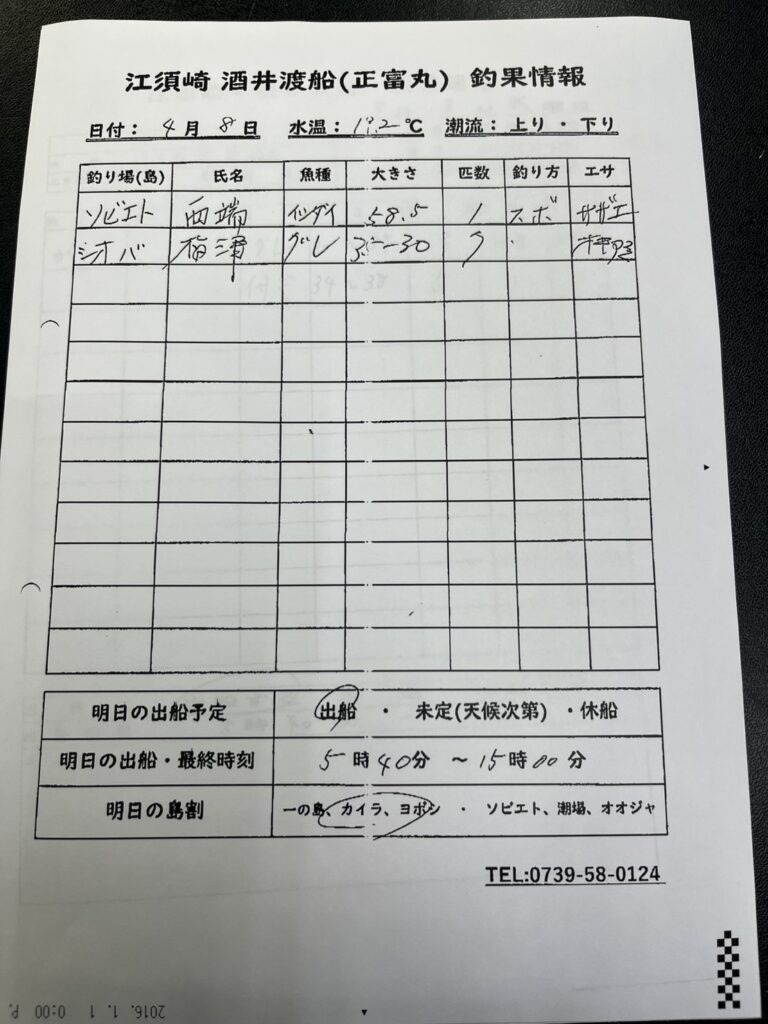 江須崎 酒井渡船(正富丸) 釣果情報
日付： 4 月 8 日 水温： 19.2 ℃ 潮流：上り・下り
釣り場(島) 氏名 魚種 大きさ 匹数 釣り方 エサ
ソビエト 西端 イシダイ 58.5 1 スボ サザエ
シオバ 梅津 グレ 35-30
明日の出船予定 出船 ・ 未定(天候次第) ・休船
明日の出船・最終時刻 5 時 40分 ～15時00分
明日の島割 一の島、カイラ、ヨボシ ・ ソビエト、潮場、オオジャ
TEL:0739-58-0124
2016. 1. 1 0:00 P.